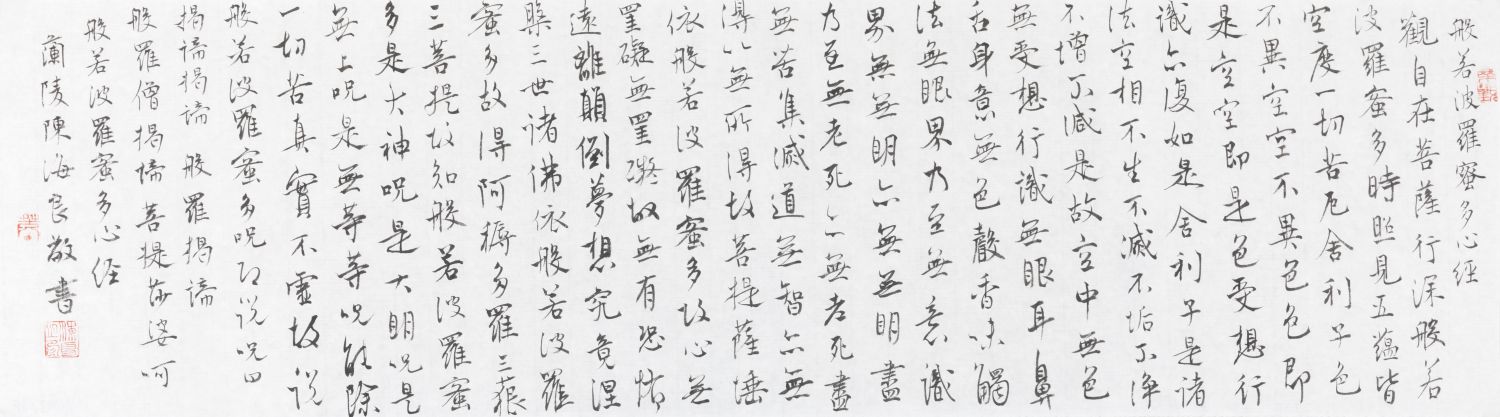 般若波羅蜜多心經
觀自在菩薩行深般若
波羅蜜多時照見五蘊皆
空度一切苦厄舍利子色
不異空空不異色色即
是空空即是色受想行
識亦復如是舍利子是諸
法空相不生不滅不垢不淨
不增不減是故空中無色
無受想行識無眼耳鼻
舌身意無色聲香味觸
法無眼界乃至無意識
界無無明亦無無明盡
乃至無老死亦無老死盡
無苦集滅道無智亦無
得以無所得故菩提薩埵
依般若波羅蜜多故心無
罣礙無罣礙故無有恐怖
遠離顛倒夢想究竟涅
槃三世諸佛依般若波羅
蜜多故得阿耨多羅三藐
三菩提故知般若波羅蜜
多是大神咒是大明咒是
無上咒是無等等咒能除
一切苦真實不虛故說
般若波羅蜜多咒即說咒曰
揭諦揭諦 般羅揭諦
般羅僧揭諦 菩提莎婆呵
般若波羅蜜多心経
蘭陵陳海良敬書